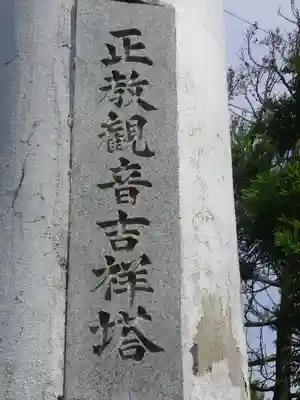 正教觀音吉祥塔